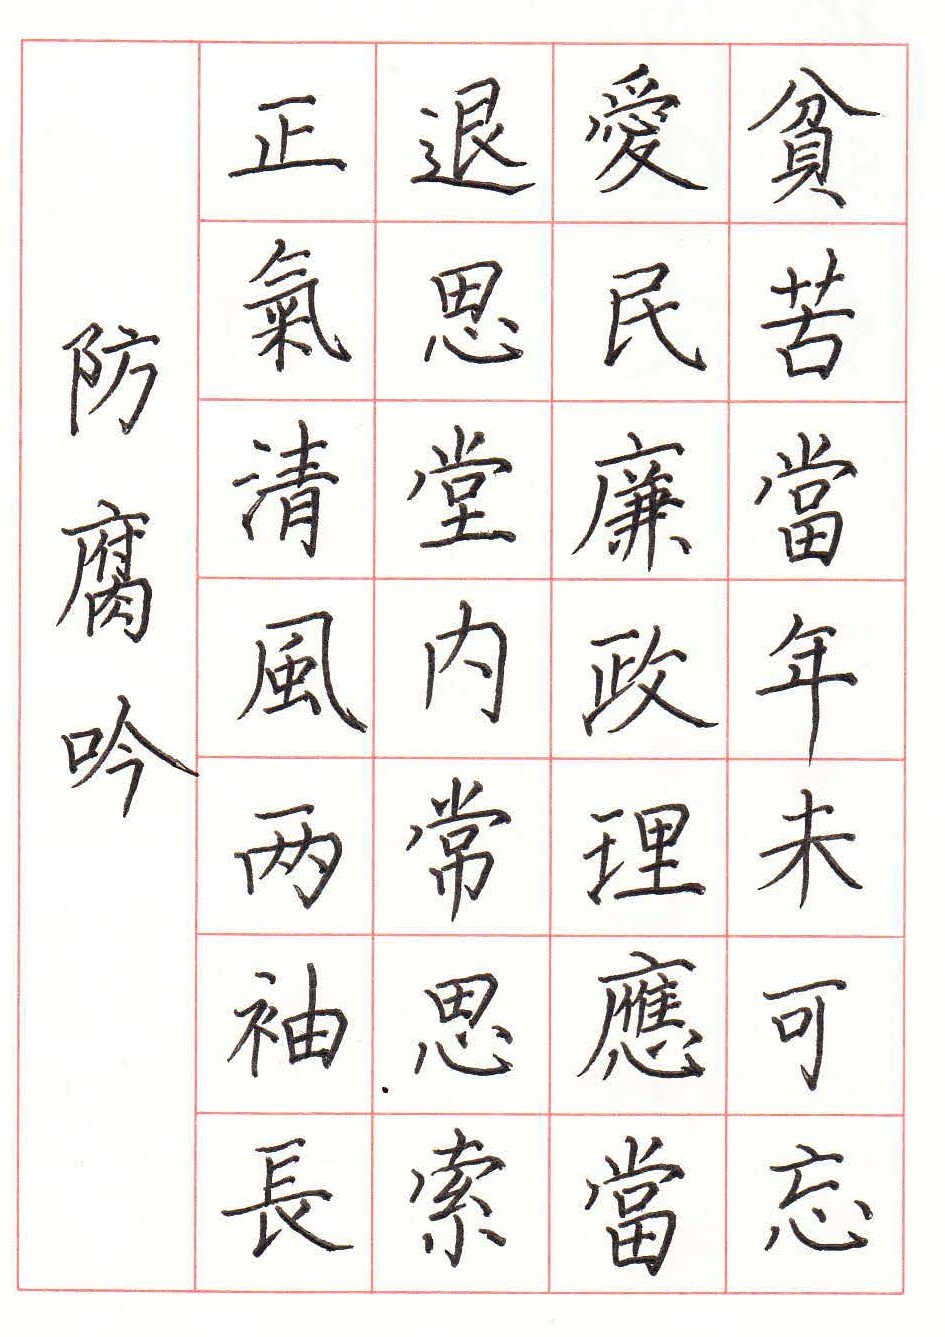 貧苦當年未可忘
愛民廉政理應當
退思堂内常思索
正氣清風两袖長
防腐吟